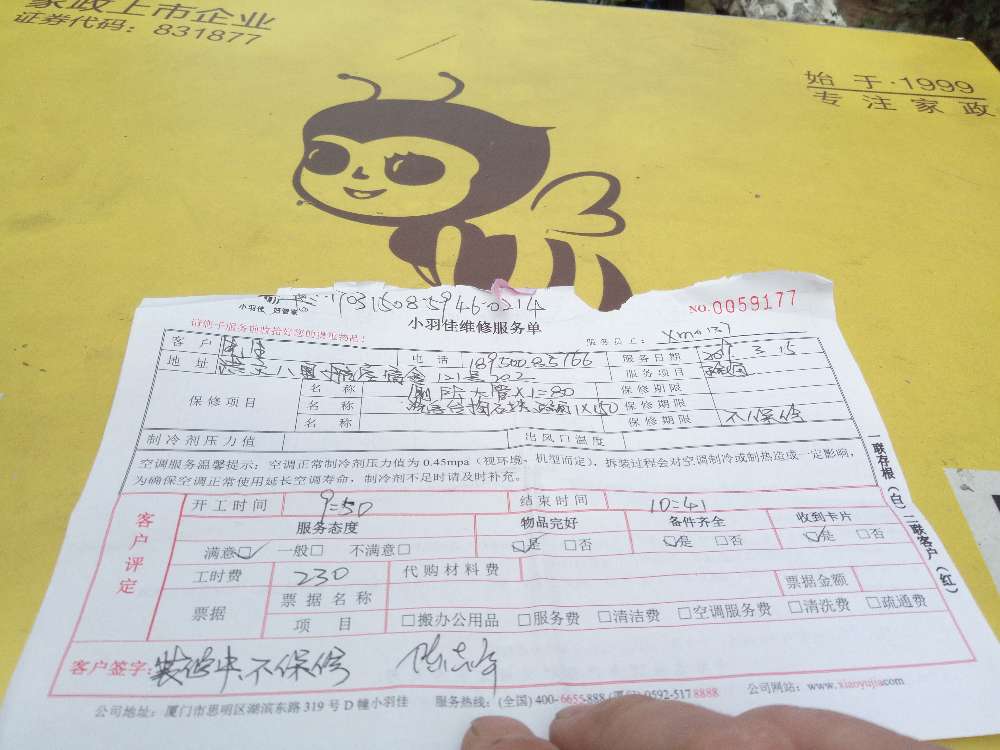 家政上市企业
证券代码：831877
始于·1999
专注家政
小羽佳 好管家
1703150859460214
NO.0059177
小羽佳维修服务单
服务员工：
客户
电话
服务日期
3.15
地址
服务项目
保修项目
名称
X1=80
保修期限
名称
1X150
保修期限
名称
保修期限
不保修
制冷剂压力值
出风口温度
空调服务温馨提示：空调正常制冷剂压力值为0.45mpa（视环境、机型而定），拆装过程会对空调制冷或制热造成一定影响，
为确保空调正常使用延长空调寿命，制冷剂不足时请及时补充。
一联存根（白）二联客户（红）
客户评定
开工时间 9=50 结束时间 10=41
服务态度 物品完好 备件齐全 收到卡片
满意☑ 一般□ 不满意□ ☑是 □否 ☑是 □否 ☑是 □否
工时费 230 代购材料费
票据 票据名称 票据金额
项目 □搬办公用品 □服务费 □清洁费 □空调服务费 □清洗费 □疏通费
客户签字：装修中.不保修
公司地址：厦门市思明区湖滨东路319号D幢小羽佳 服务热线：(全国)400-6655-888 0592-517 8888 公司网站：www.xiaoyujia.com